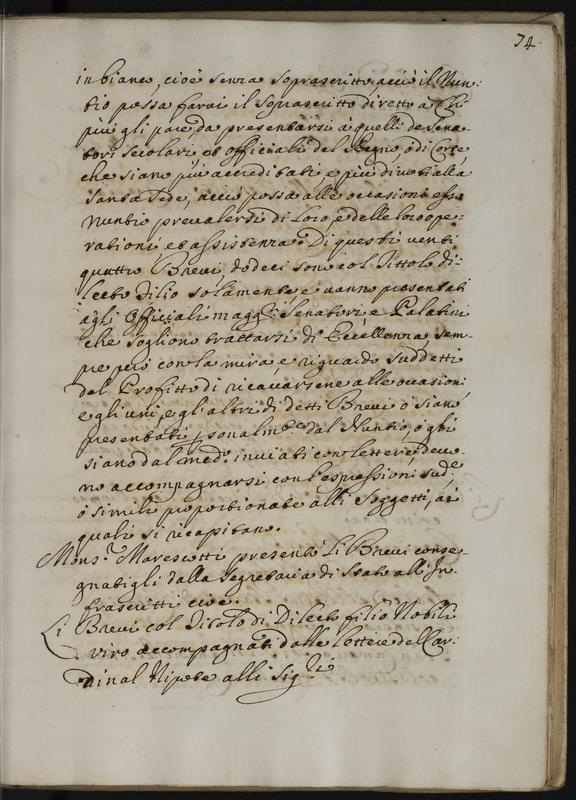 74.
in bianco, cioè senza soprascritto, acciò il Nun:
tio possa farui il soprascritto diretto a chi
più gli pare, da presentarsi a quelli de Sena
tori secolari et officiali del Regno, o di Corte,
che siano più accreditati e più diuoti alla
santa sede, acciò possa alle occasioni esso
Nuntio preualersi di loro, e delle loro ope:
rationi, et assistenza. Di questi uenti
quattro Breui, dodeci sono col Tittolo di:
lecto filio solamente, e uanno presentati
agli Officiali magg.ri Senatori e Palatini
che sogliono trattarsi di Eccellenza, sem:
pre però con la mira, e riguardo suddetti
del Profitto di ricauarsene alle occasioni,
e gli uni, e gli altri di detti Breui ò siano
presentati p̱sonalm.te dal Nuntio, ò gli
siano dal med.o inuiati con lettere, deuo:
no accompagnarsi con l'espressioni sud.e
ò simili proportionate alli soggetti, ai
quali si ricapitano.
Mons.r Marescotti presentò li Breui conse:
gnatigli dalla segretaria di stato all'In:
frascritti cioè.
Li Breui col Titolo di Dilecto filio Nobili
viro accompagnati dalle lettere del Car:
dinal Nipote alli Sig.ri